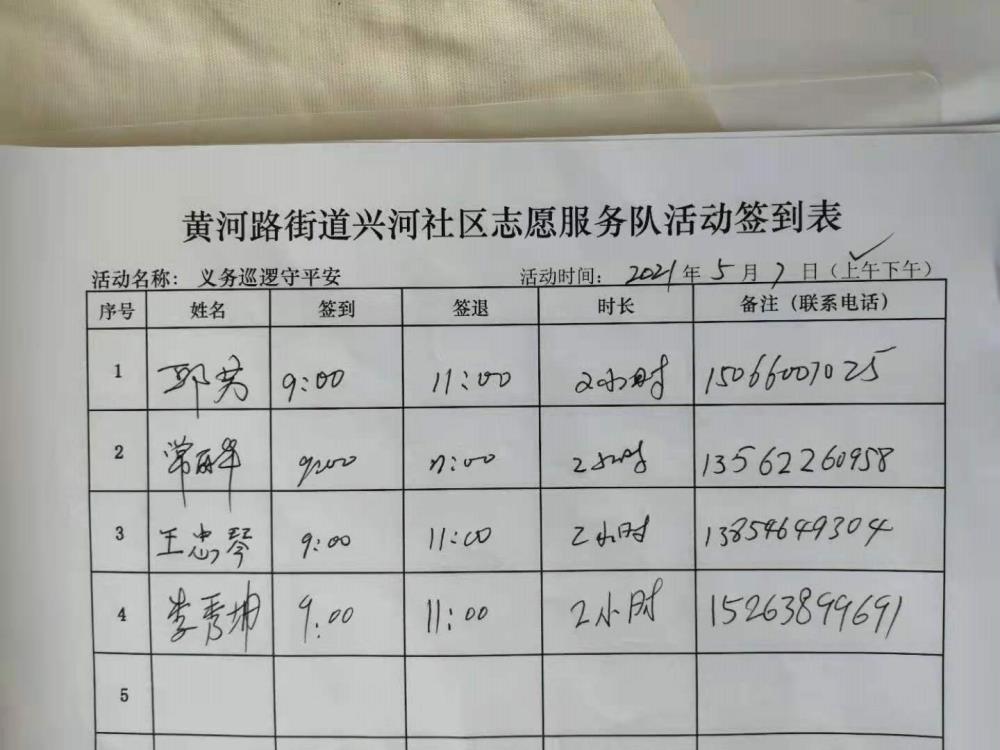 黄河路街道兴河社区志愿服务队活动签到表
活动名称：义务巡逻守平安 活动时间：2021年5月7日（上午下午）
序号 姓名 签到 签退 时长 备注（联系电话）
1 9:00 11:00 2小时 15066007025
2 常 9:00 11:00 2小时 13562260958
3 王忠琴 9:00 11:00 2小时 13854649304
4 李秀 9:00 11:00 2小时 15263899691
5